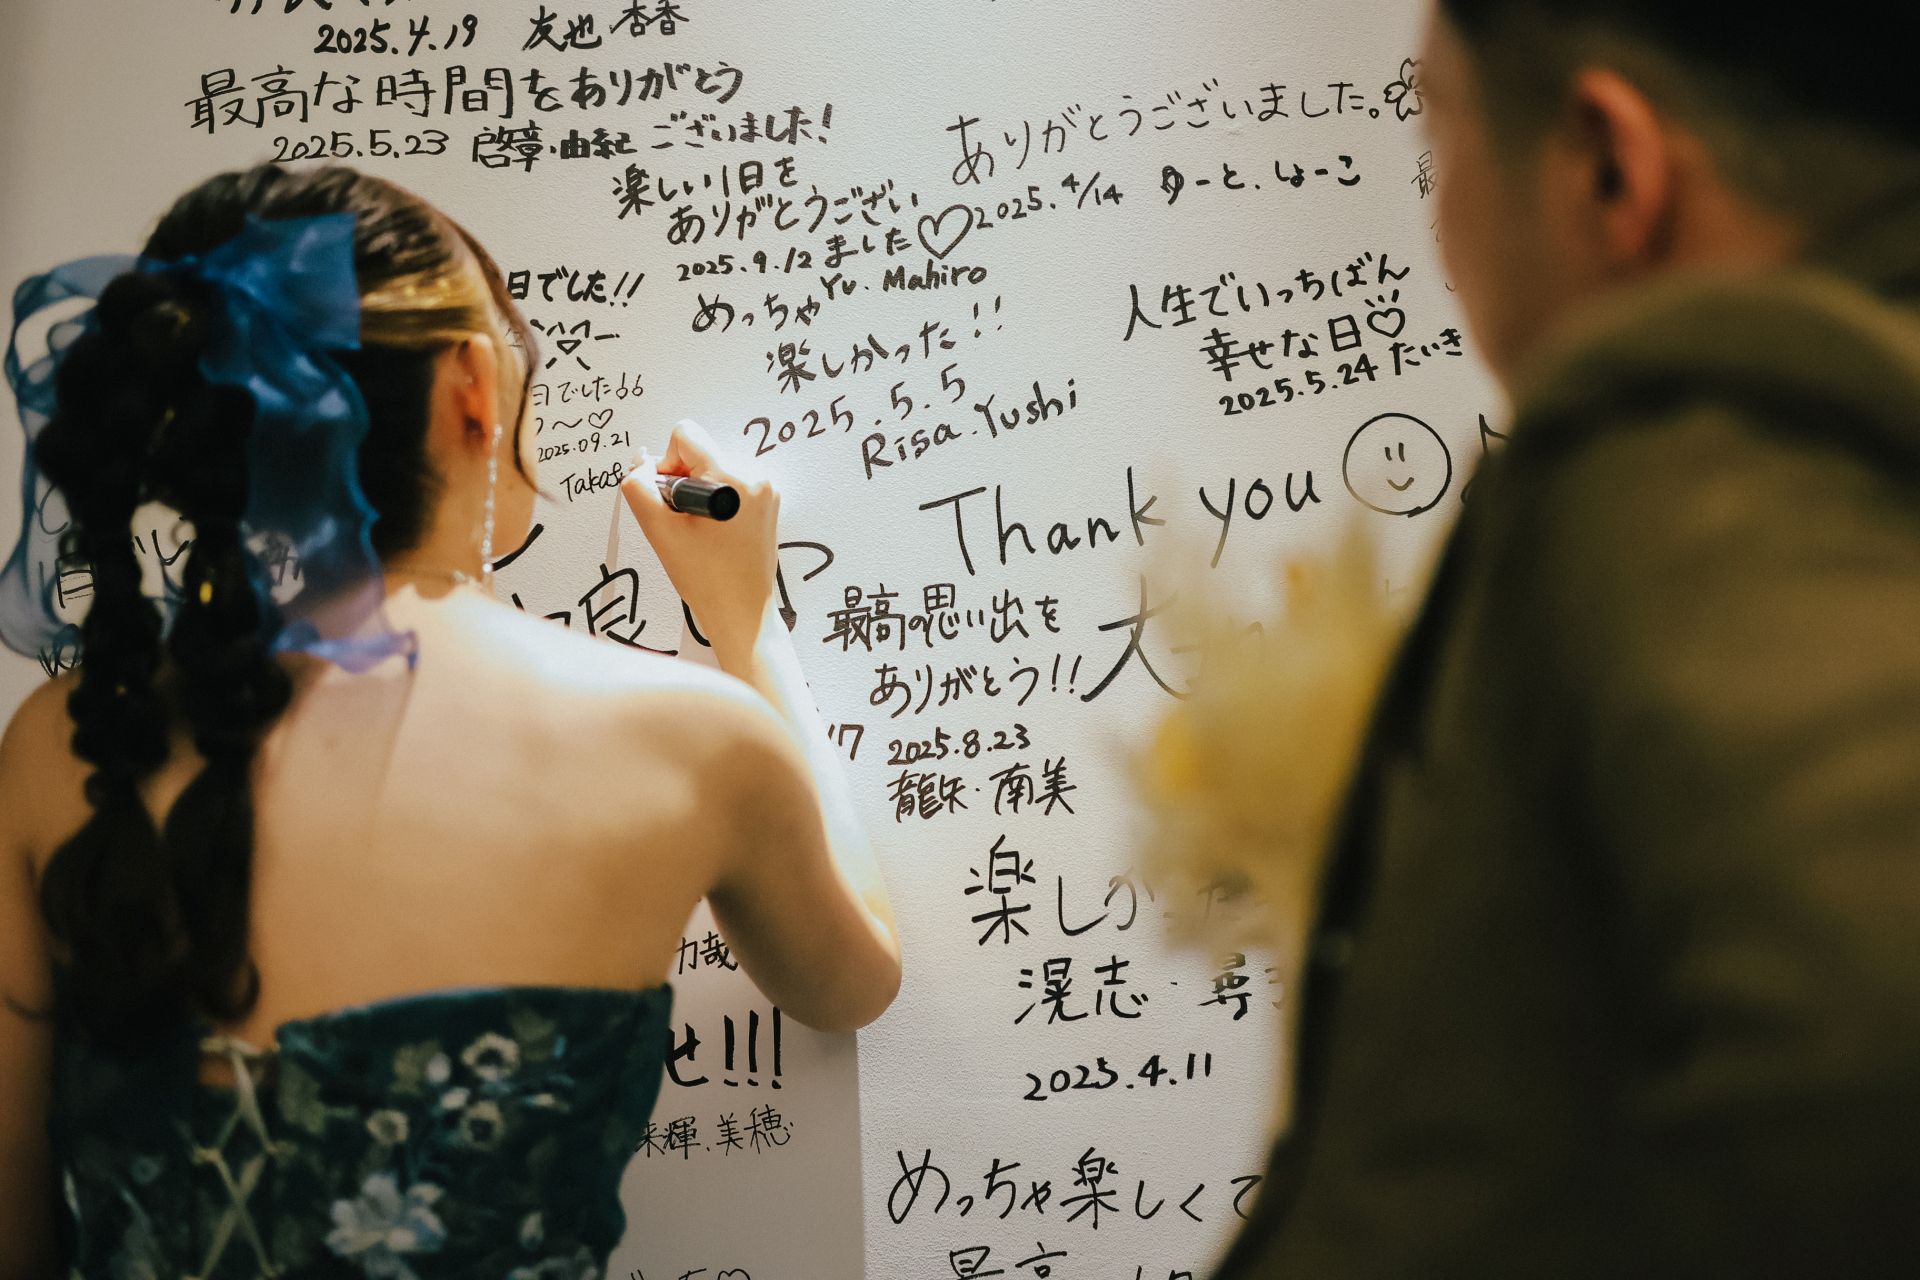 2025.4.19 友也・杏香
最高な時間をありがとう
ございました!
2025.5.23 啓章・由紀
楽しい1日を
ありがとうござい
ました♡
2025.9.12
Yu. Mahiro
ありがとうございました。
2025.4/14 ゆーと.しょーこ
最
日でした!!
日でした
2025.09.21
Takas
めっちゃ
楽しかった!!
2025.5.5
Risa.Yushi
人生でいっちばん
幸せな日♡
2025.5.24 たいき
Thank you
良
最高の思い出を
ありがとう!!
2025.8.23
龍矢・南美
大
17
楽しか
滉志・尋
2025.4.11
哉
せ!!!
輝.美穂
めっちゃ楽しくて
最高